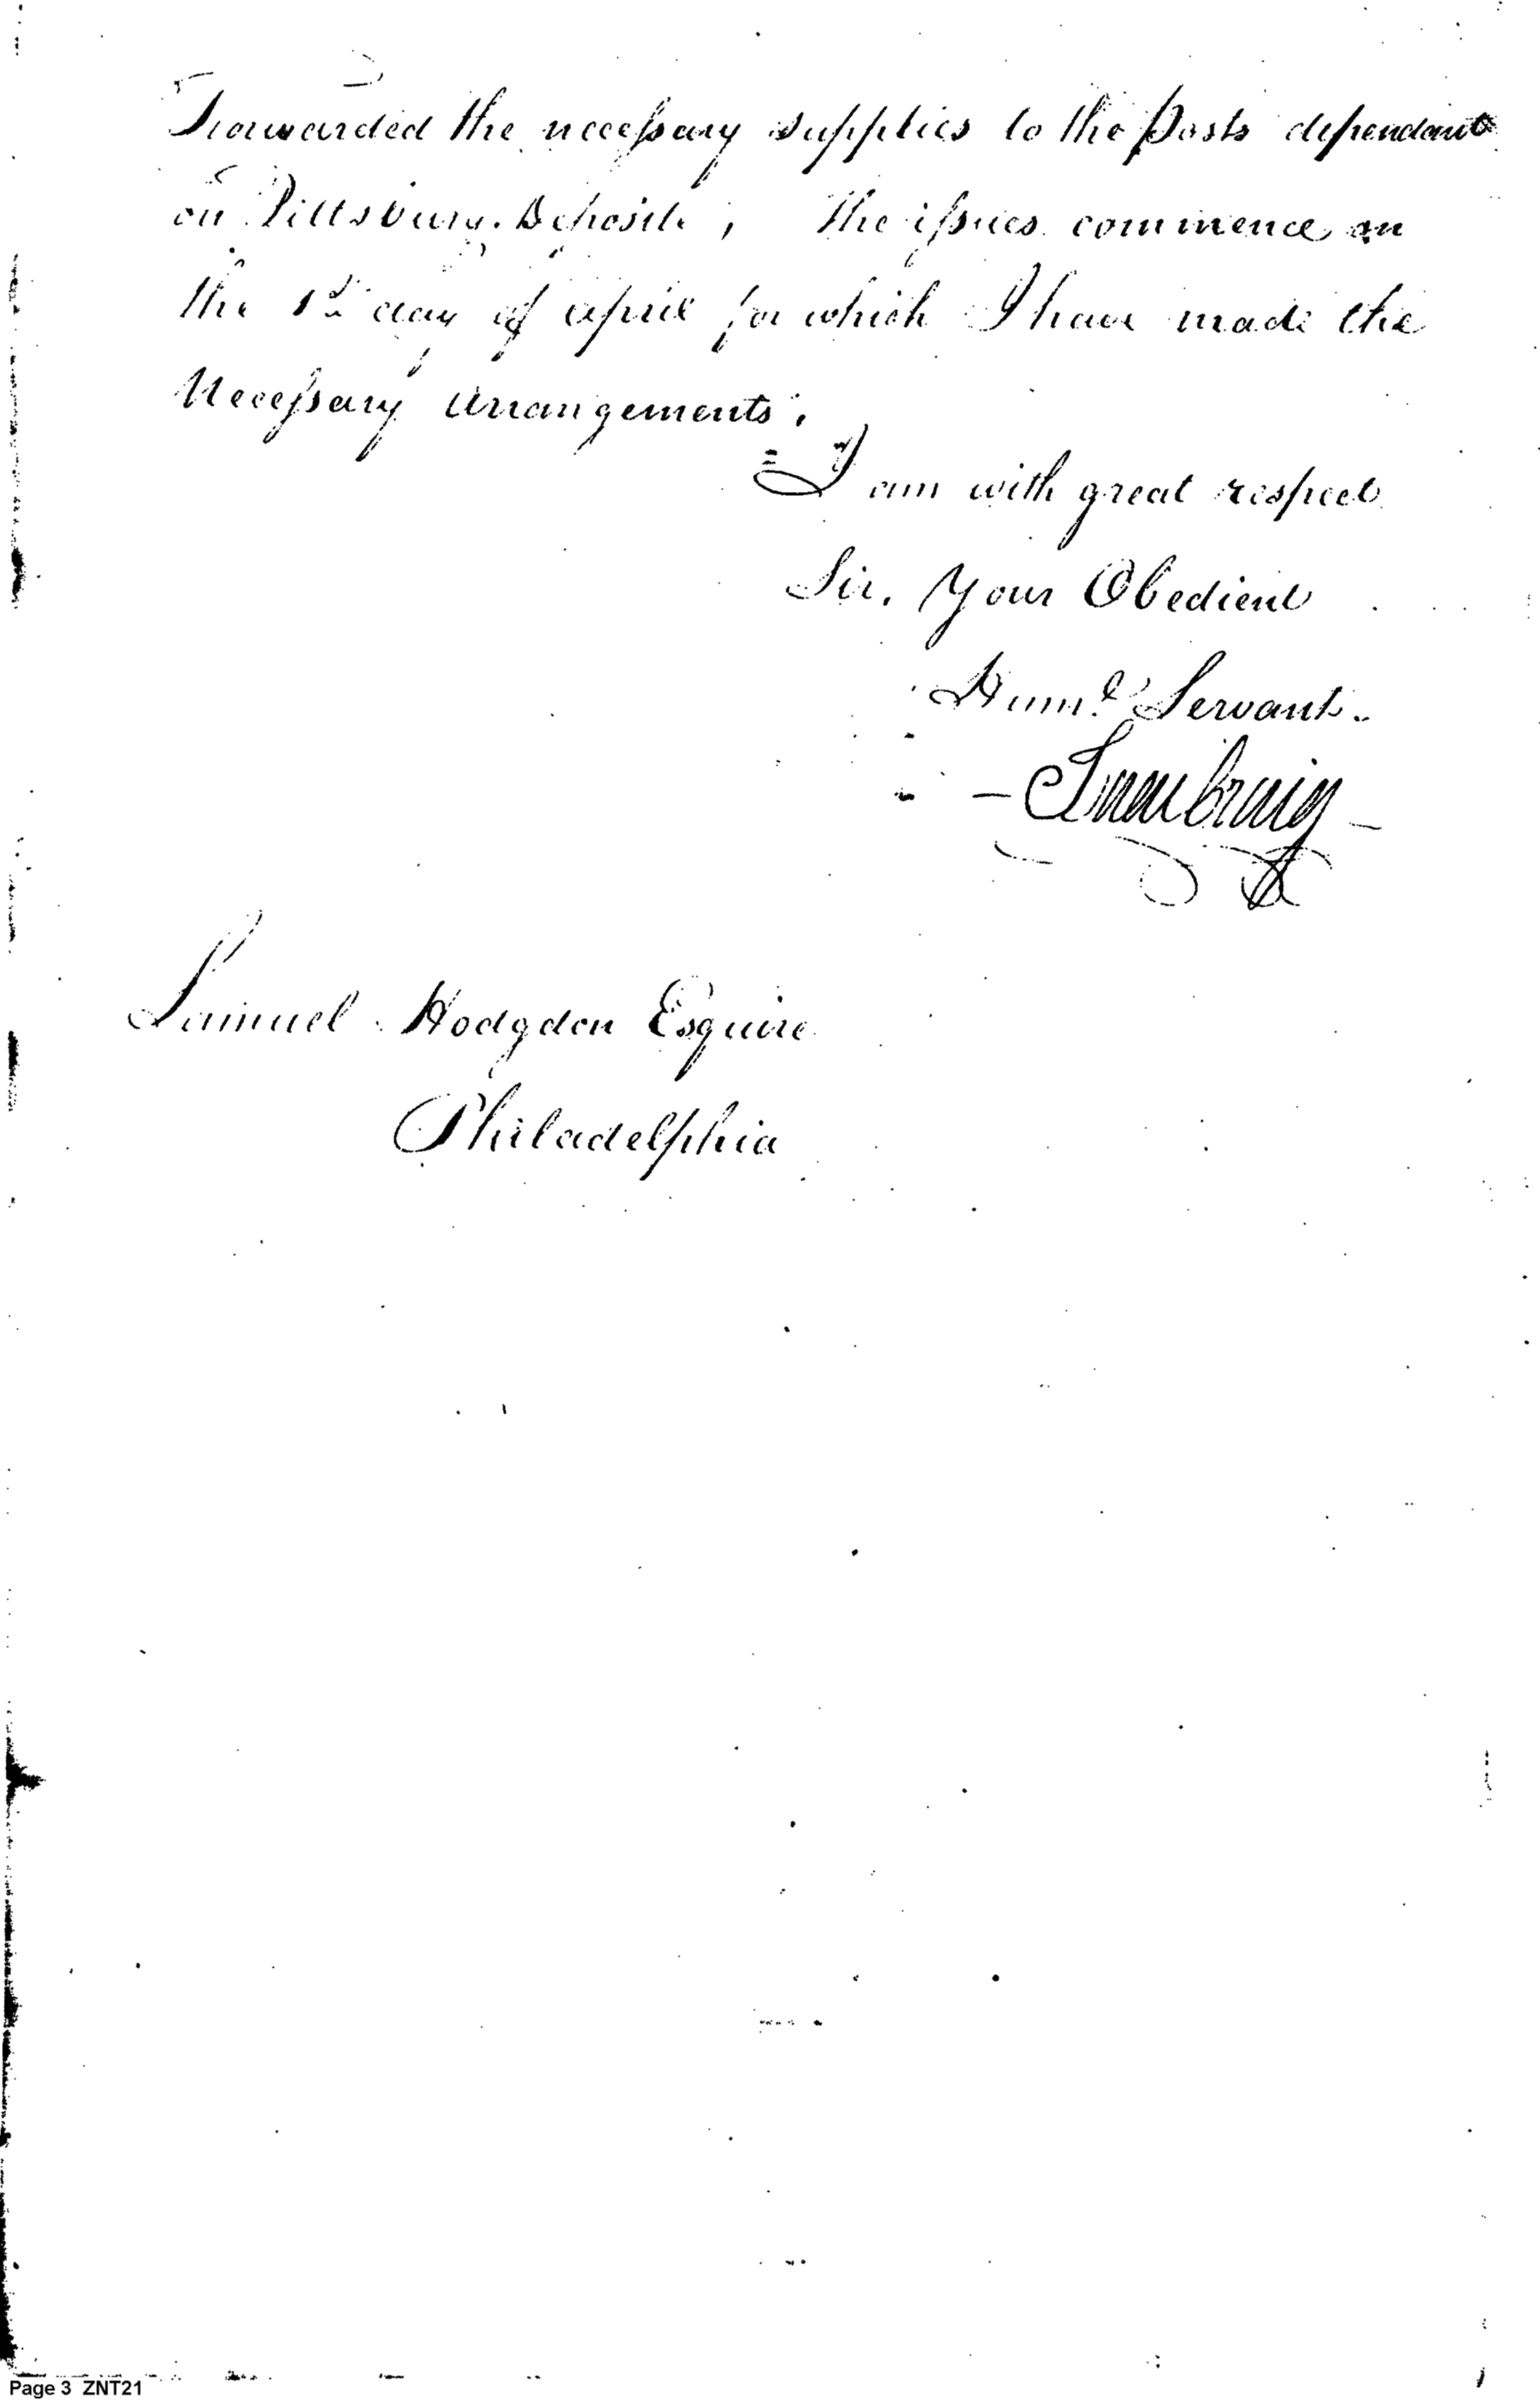 Forwarded the necessary supplies to the Posts dependant
on Pittsburg. Deposite, The issues commence on
the 1st day of april for which I have made the
Necessary Arrangements.
I am with great respect
Sir. Your Obedient
Huml Servant.
Samuel Hodgdon Esquire
Philadelphia
Page 3 ZNT21